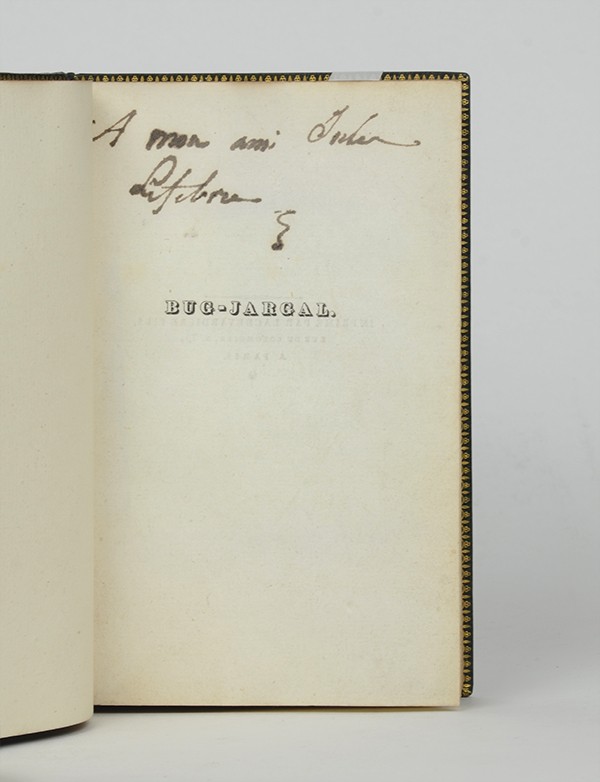 A mon ami Jules
Lefebvre
BUG-JARGAL.